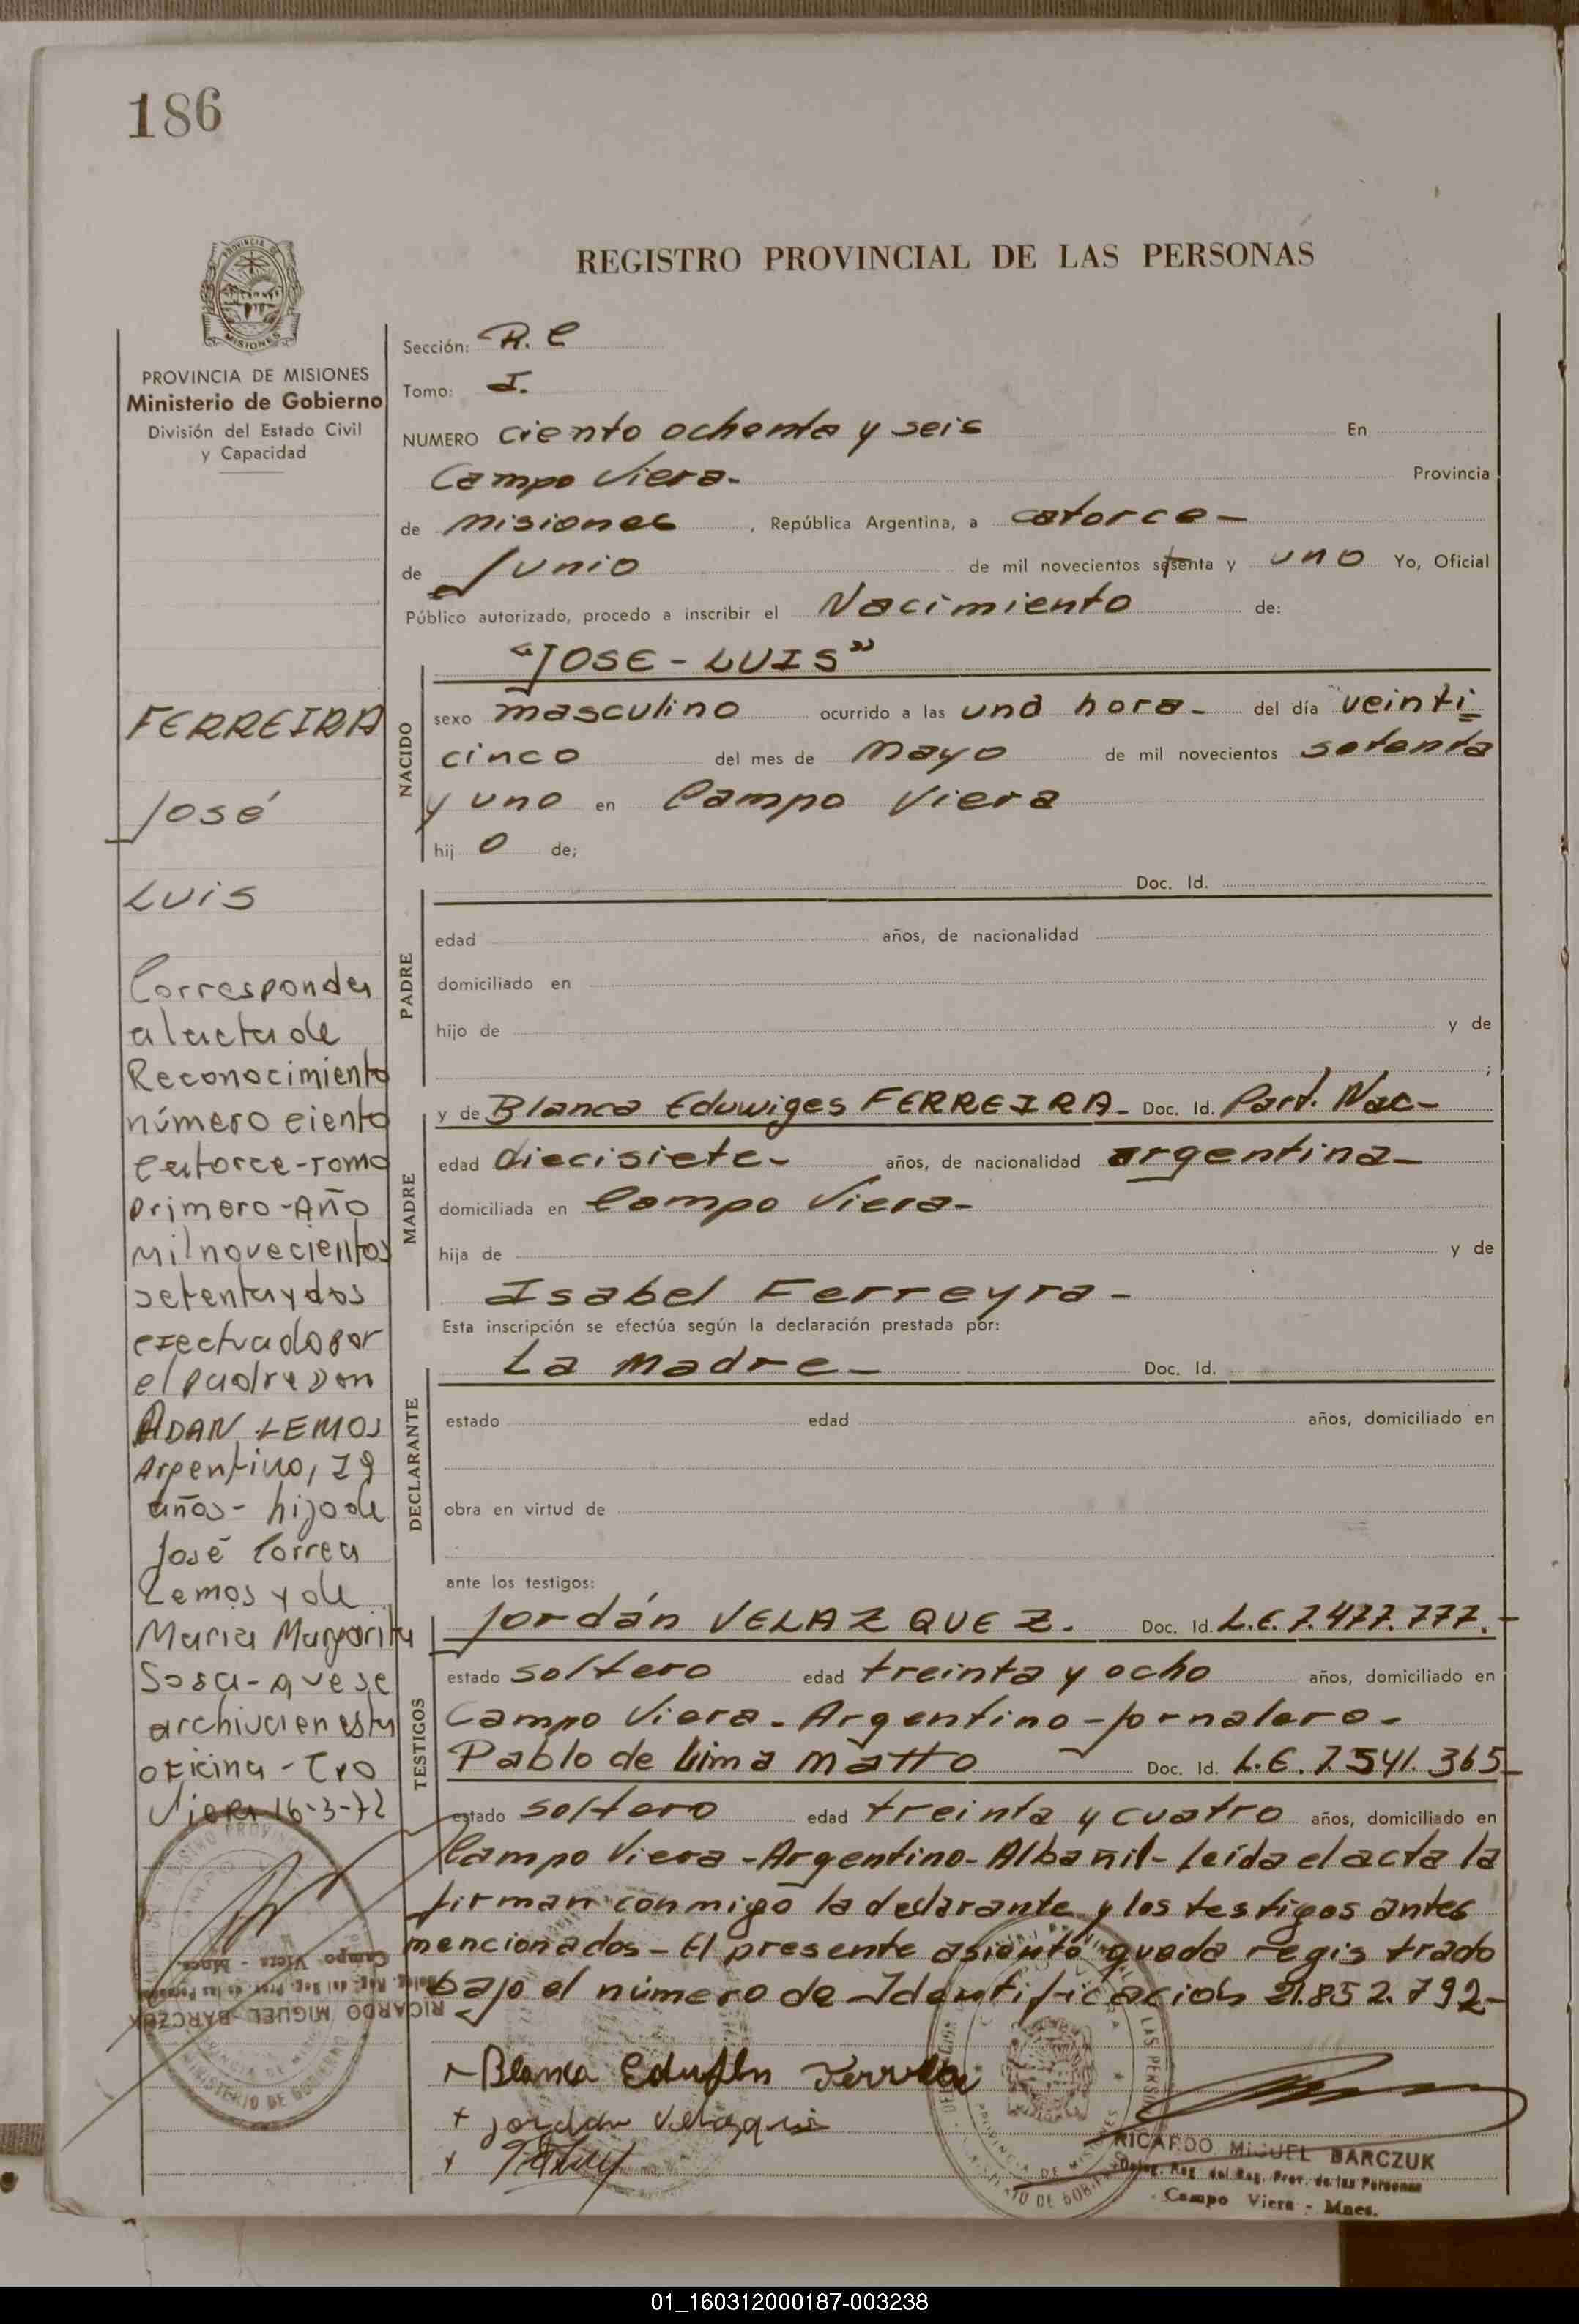 186
REGISTRO PROVINCIAL DE LAS PERSONAS
PROVINCIA
MISIONES
PROVINCIA DE MISIONES
Ministerio de Gobierno
División del Estado Civil
y Capacidad
FERREIRA
José
Luis
Corresponde
al acta de
Reconocimiento
número ciento
catorce-Tomo
primero-Año
mil novecientos
setenta y dos
efectuado por
el padre Don
ADAN LEMOS
Argentino, 29
años - hijo de
José Correa
Lemos y de
Maria Margarita
Sosa - que se
archiva en esta
oficina - Cpo
Viera 16-3-72
Sección: R. C
Tomo: I.
NUMERO ciento ochenta y seis En
Campo Viera - Provincia
de Misiones, República Argentina, a catorce -
de Junio de mil novecientos setenta y uno Yo, Oficial
Público autorizado, procedo a inscribir el Nacimiento de:
"JOSE - LUIS"
NACIDO
sexo masculino ocurrido a las una hora - del día veinti=
cinco del mes de Mayo de mil novecientos setenta
y uno en Campo Viera
hij o de;
Doc. Id.
PADRE
edad años, de nacionalidad
domiciliado en
hijo de y de
;
MADRE
y de Blanca Eduwiges FERREIRA - Doc. Id. Part. Nac -
edad diecisiete - años, de nacionalidad argentina -
domiciliada en Campo Viera -
hija de y de
Isabel Ferreyra -
Esta inscripción se efectúa según la declaración prestada por:
La Madre - Doc. Id.
DECLARANTE
estado edad años, domiciliado en
obra en virtud de
ante los testigos:
TESTIGOS
Jordán VELAZQUEZ. Doc. Id. L.E. 7.477.777. -
estado soltero edad treinta y ocho años, domiciliado en
Campo Viera - Argentino - jornalero -
Pablo de Lima Matto Doc. Id. L.E. 7.541.365 -
estado soltero edad treinta y cuatro años, domiciliado en
Campo Viera - Argentino - Albañil - leída el acta la
firman conmigo la declarante y los testigos antes
mencionados - El presente asiento queda registrado
bajo el número de Identificación 21.852.792 -
Blanca Ferreira
Jordan Velazque
RICARDO MIGUEL BARCZUK
Deleg. Reg. del Reg. Prov. de las Personas
Campo Viera - Mnes.
RICARDO MIGUEL BARCZUK
Deleg. Reg. del Reg. Prov. de las Personas
Campo Viera - Mnes.
MINISTERIO DE GOBIERNO
PROVINCIA DE MISIONES
01_160312000187-003238